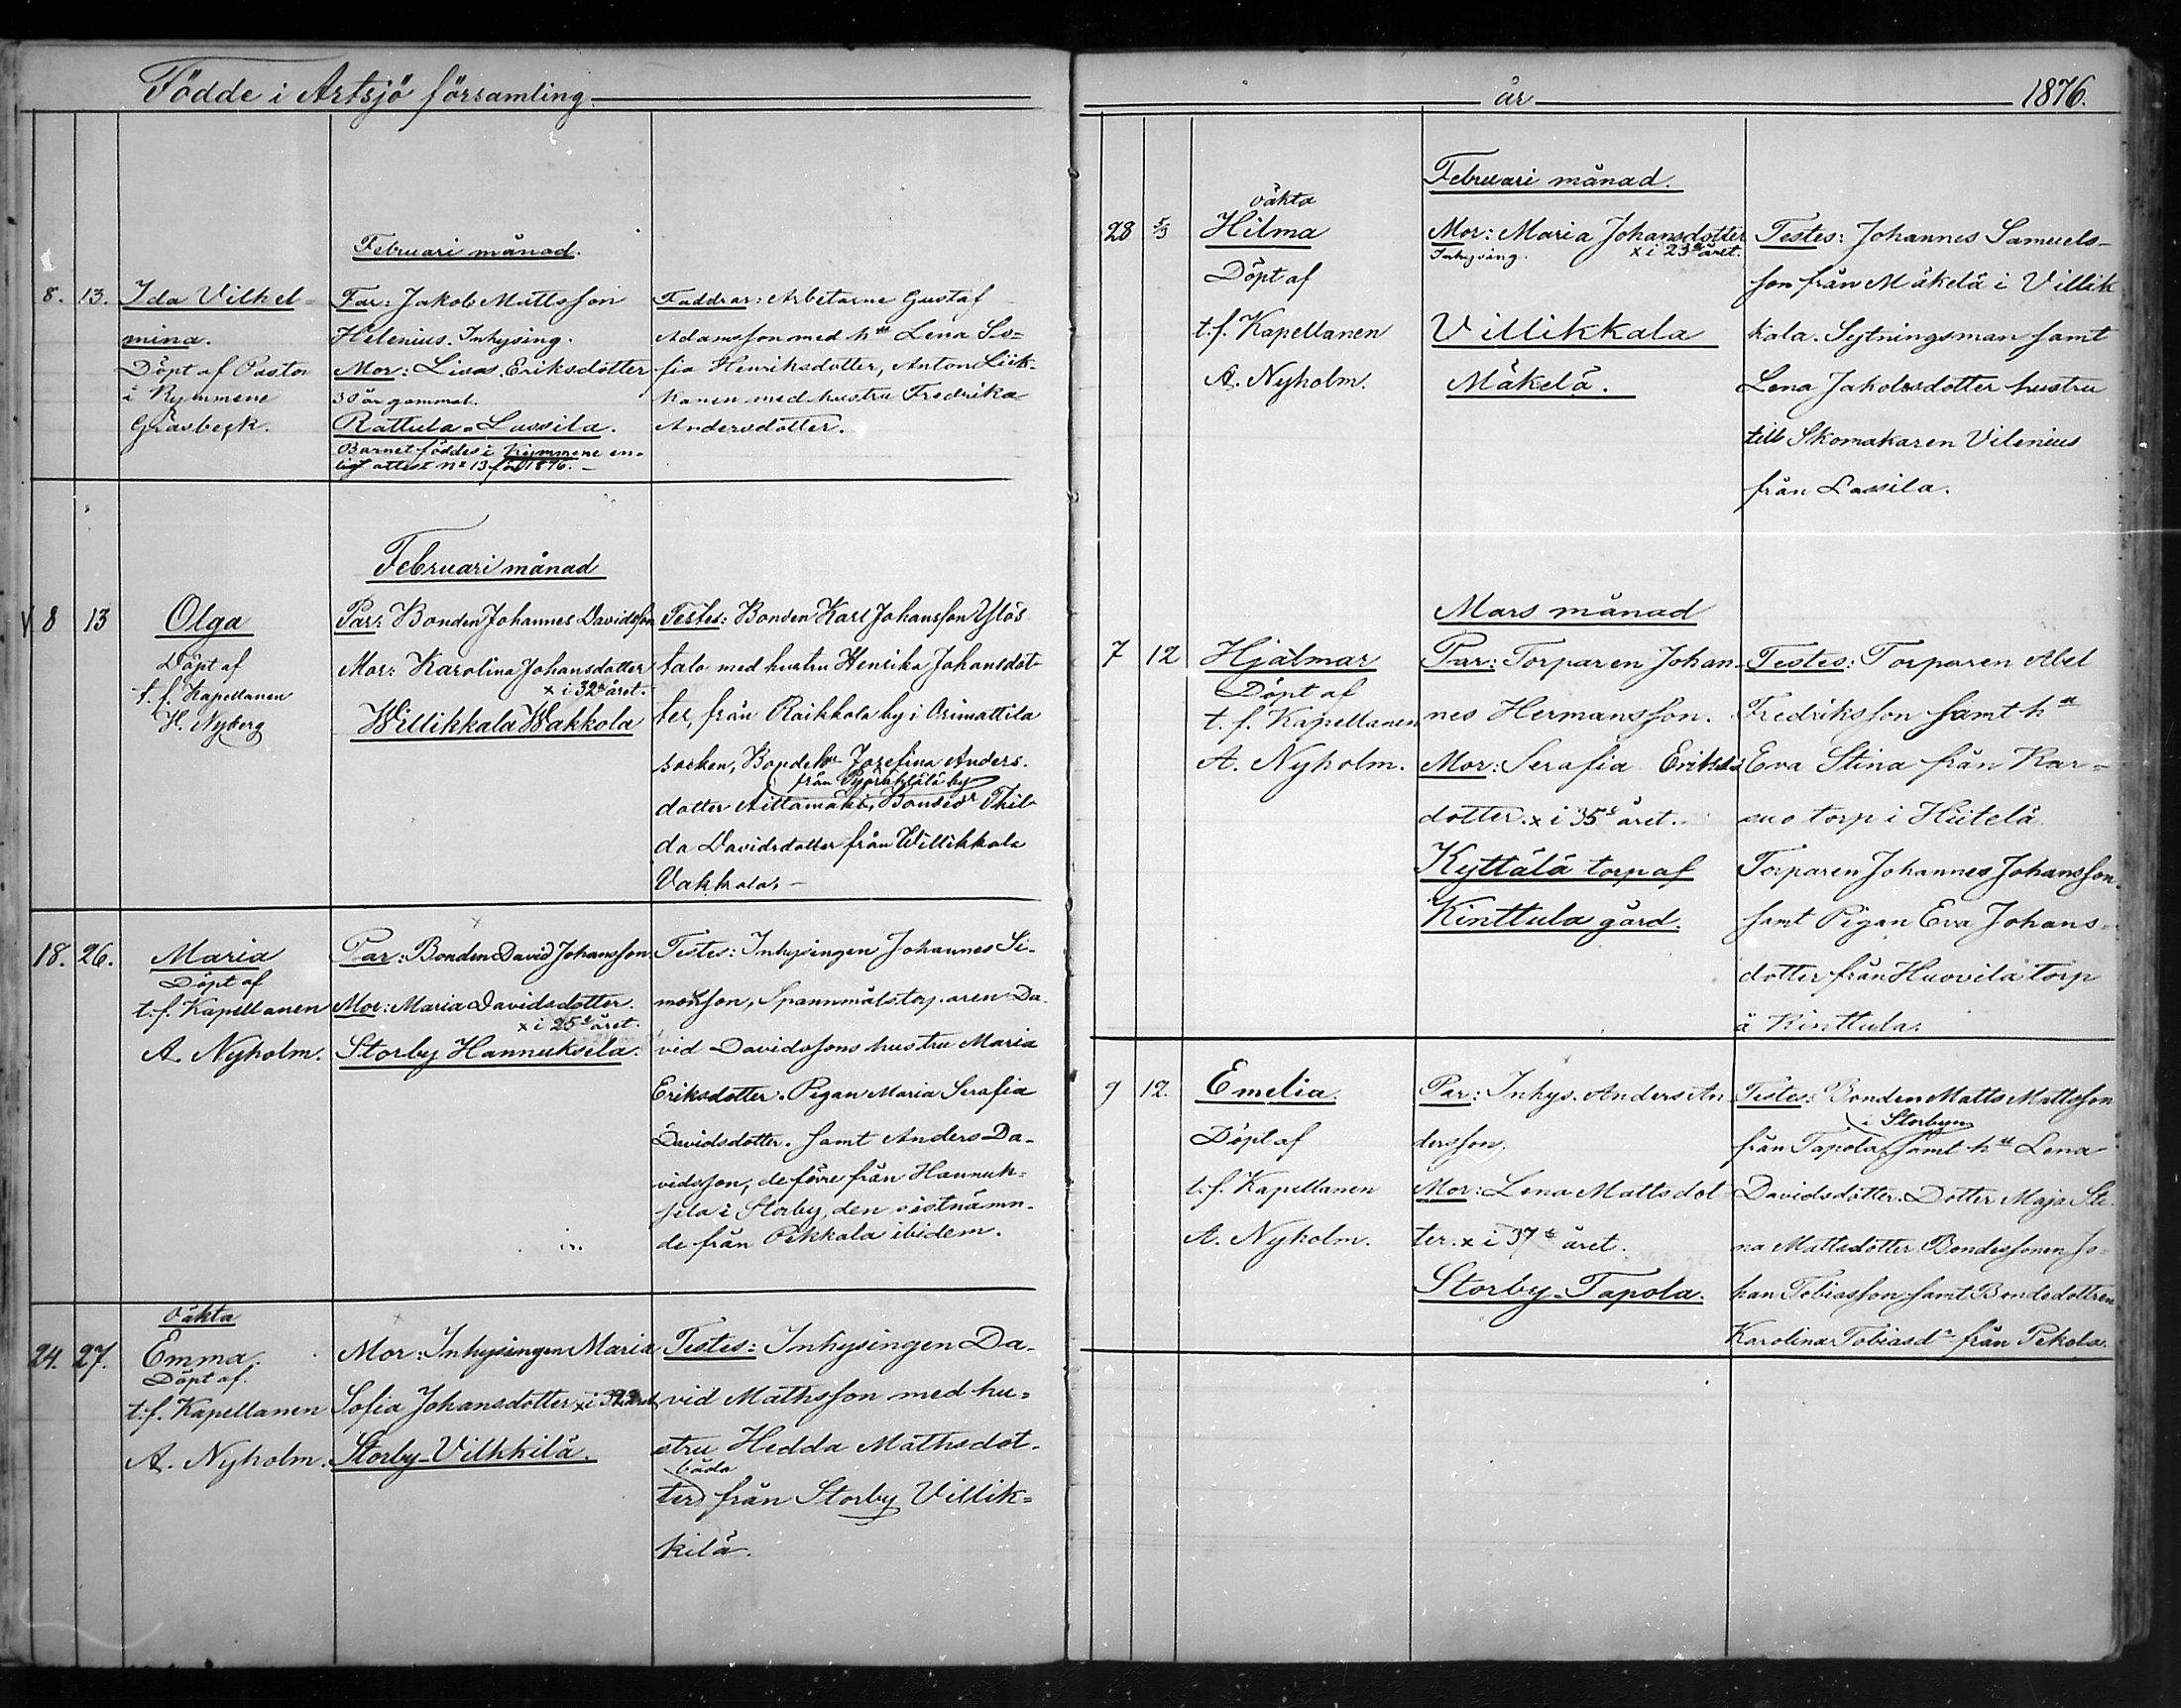 Födde i Artsjö församling.
Februari månad.
8. 13. Ida Vilhel-
mina.
Döpt af Pastor
i Kymmene
Gråsbeck.
Far: Jakob Mattsson
Helenius. Inhysing.
Mor: Lisa Eriksdotter
30 år gammal.
Rattula-Lassila.
Barnet föddes i Kymmene en-
ligt attest No 13 för 1876. -
Faddrar: Arbetarne Gustaf
Adamsson med hu Lena So-
fia Henriksdotter, Anton Liik-
kanen med hustru Fredrika
Andersdotter.
Februari månad
V 8 13 Olga
Döpt af
t. f. Kapellanen
H. Nyberg
Par: Bonden Johannes Davidsson
Mor: Karolina Johansdotter
x i 32a året.
Willikkala Wakkola
Testes: Bonden Karl Johansson Ylös
talo med hustru Henrika Johansdot-
ter, från Raikkola by i Orimattila
socken, Bondehu Josefina Anders-
från by
dotter Aittamäki, Bondedr Thil-
da Davidsdotter från Willikkala
Vakkola. -
18. 26. Maria
Döpt af
t. f. Kapellanen
A. Nyholm.
Par: Bonden David Johansson
Mor: Maria Davidsdotter.
x i 25e året.
Storby Hannuksela.
Testes: Inhysingen Johannes Si-
monsson, Spannmålstorparen Da-
vid Davidssons hustru Maria
Eriksdotter. Pigan Maria Serafia
Davidsdotter. samt Anders Da-
vidsson, de förre från Hannuk-
sela i Storby, den sistnämn-
de från Pekkala ibidem.
Oäkta
24. 27. Emma.
Döpt af.
t. f. Kapellanen
A. Nyholm.
Mor: Inhysingen Maria
Sofia Johansdotter x i året
Storby-Vilkkilä.
Testes: Inhysingen Da-
vid Mathsson med hu-
stru Hedda Mathsdot-
båda
ter från Storby Villik-
kilä.
år 1876.
Februari månad.
oäkta
28 5/3 Hilma
Döpt af
t. f. Kapellanen
A. Nyholm.
Mor: Maria Johansdotter
Inhysing. x i 23e året.
Villikkala
Mäkelä.
Testes: Johannes Samuels-
son från Mäkelä i Villik
kala. Sytningsman samt
Lena Jakobsdotter hustru
till Skomakaren Vilenius
från Lassila.
Mars månad
7 12 Hjalmar
Döpt af
t. f. Kapellanen
A. Nyholm.
Par: Torparen Johan-
nes Hermansson.
Mor: Serafia Eriks
dotter. x i 35e året.
Kyttälä torp af
Kinttula gård.
Testes: Torparen Abel
Fredriksson samt hu
Eva Stina från Kar-
suo torp i Hiitelä
Torparen Johannes Johansson.
samt Pigan Eva Johans-
dotter från Huovila torp
å Kinttula.
9 12. Emelia.
Döpt af
t. f. Kapellanen
A. Nyholm.
Par: Inhys. Anders An
dersson.
Mor: Lena Mattsdot
ter. x i 37e året.
Storby-Tapola.
Testes: Bonden Matts Mattsson
i Storbyn
från Tapola samt hu Lena
Davidsdotter. Dotter Maja Sti-
na Mattsdotter Bondesonen Jo-
han Tobiasson samt Bondedottren
Karolina Tobiasdr från Pekola.